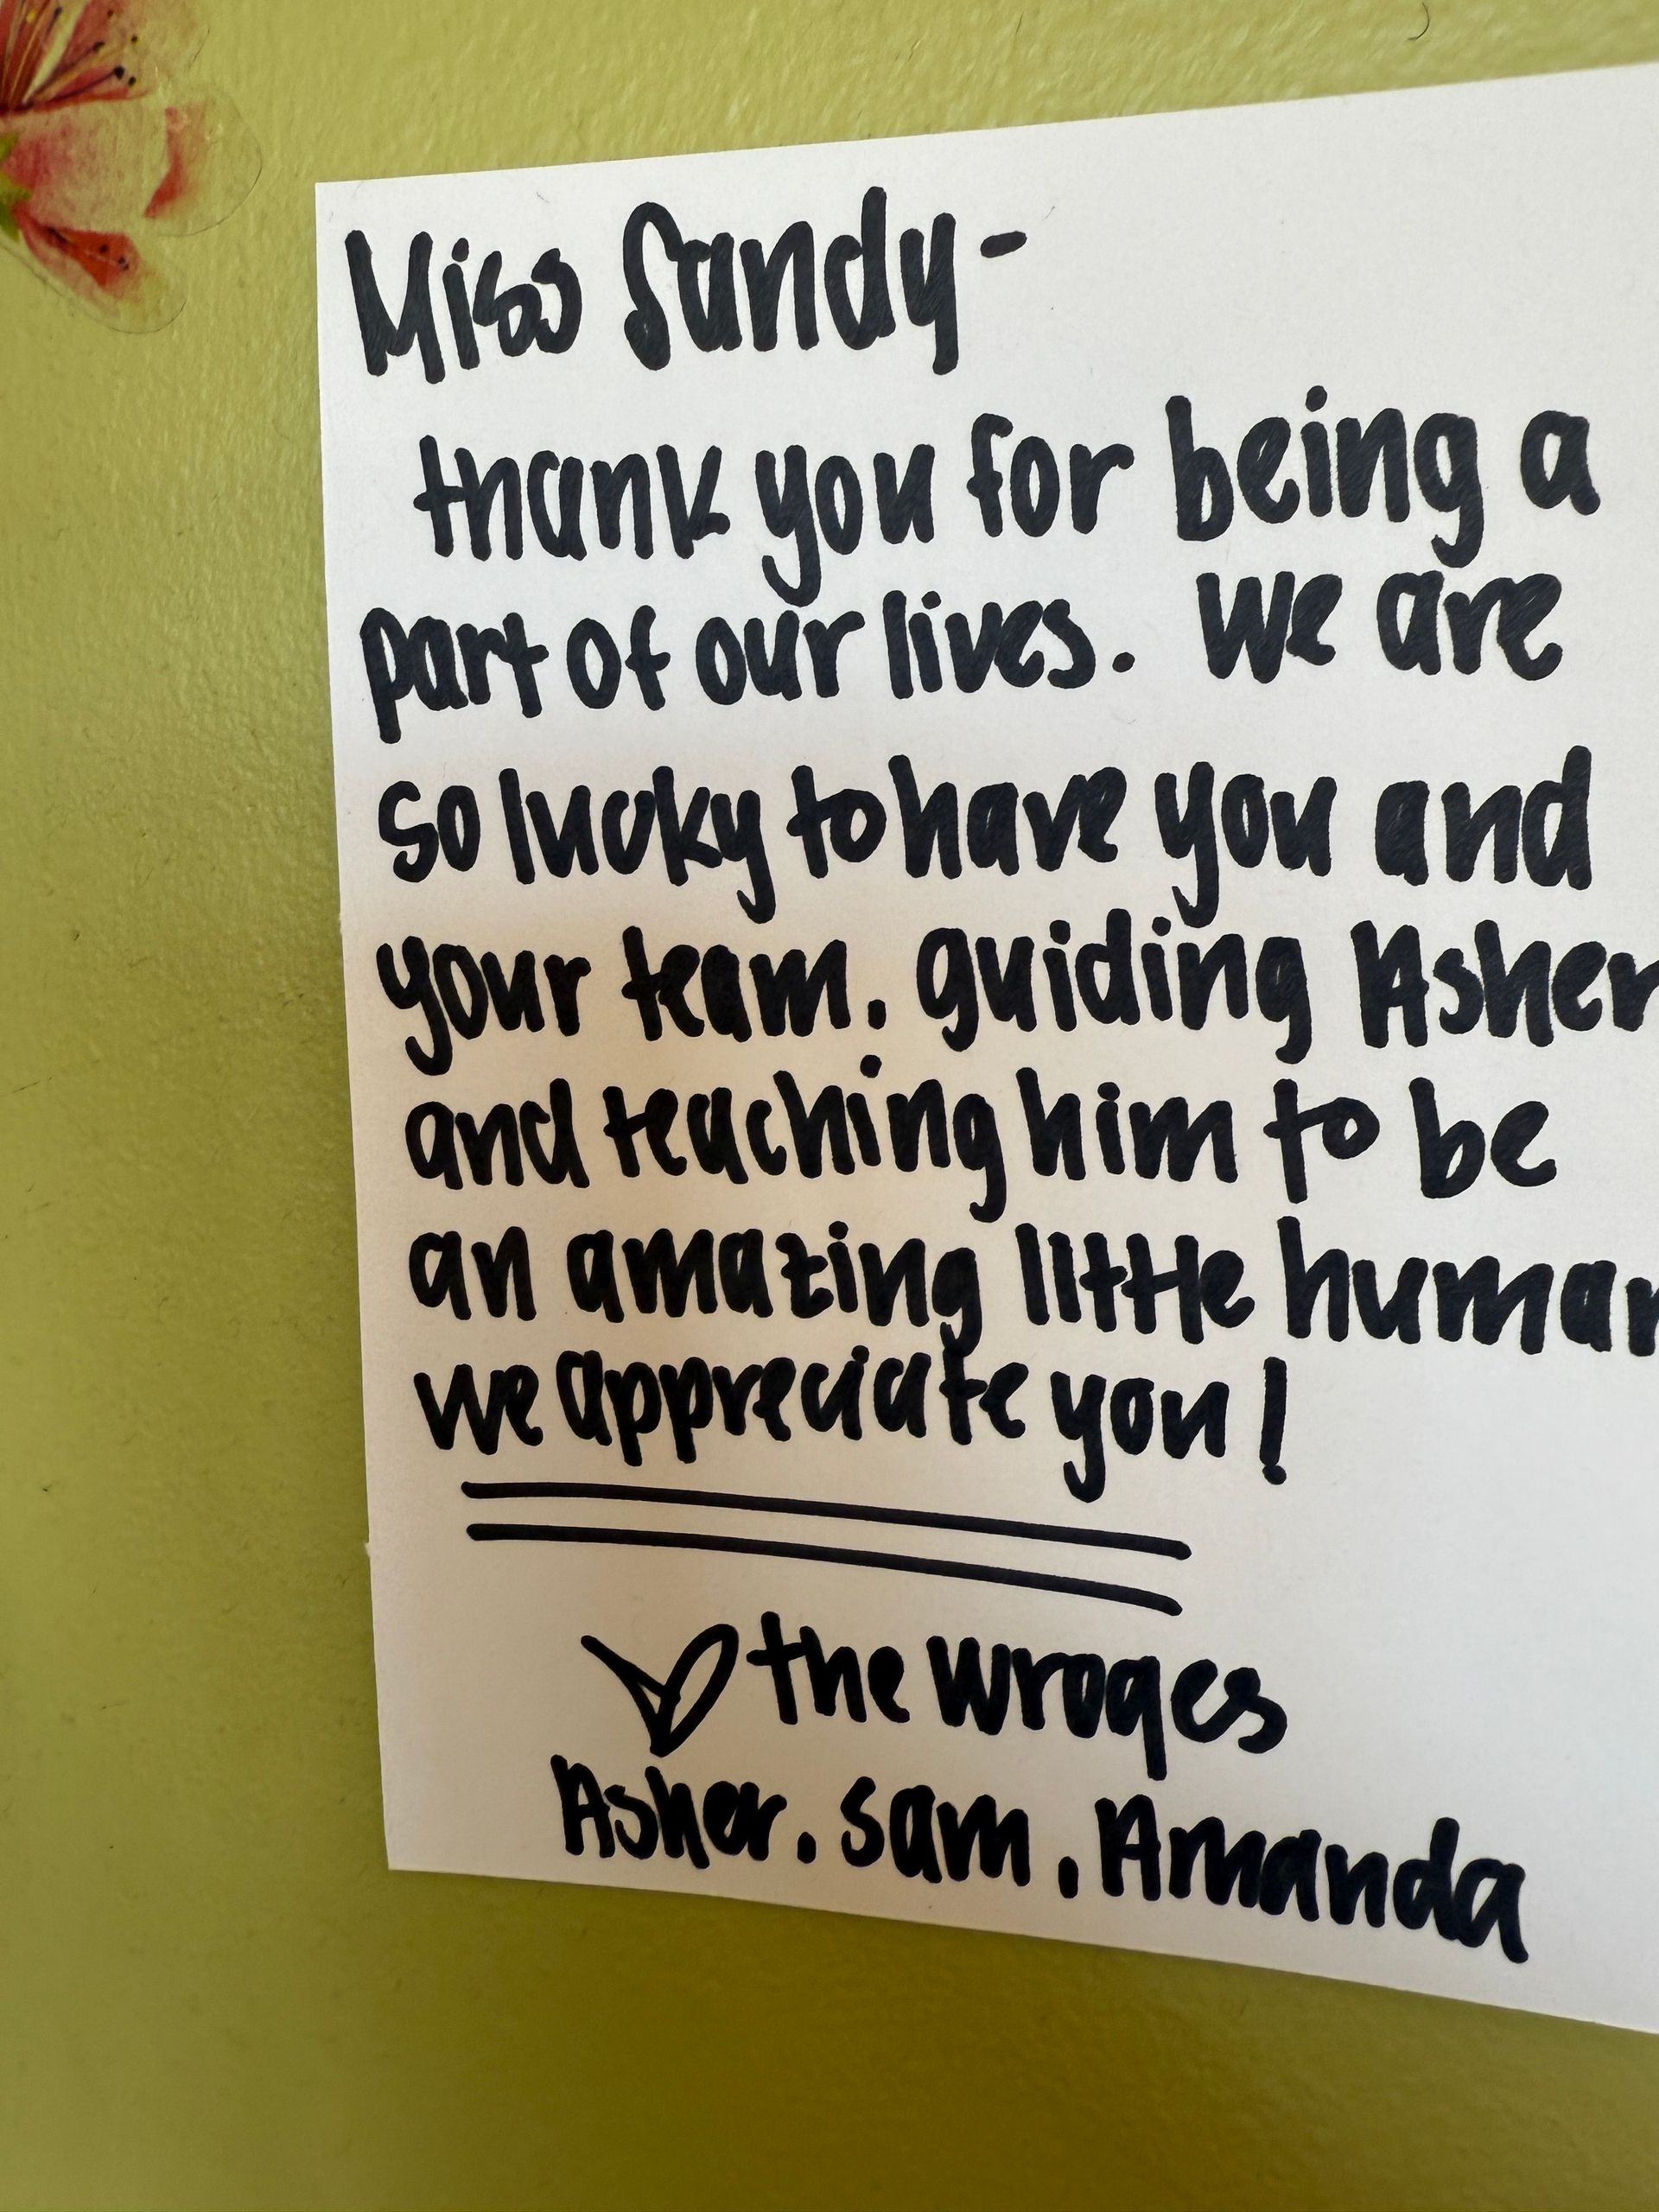 Miss Sandy -
thank you for being a
part of our lives. We are
so lucky to have you and
your team. guiding Asher
and teaching him to be
an amazing little human
we appreciate you!
♡ the Wroges
Asher, Sam, Amanda